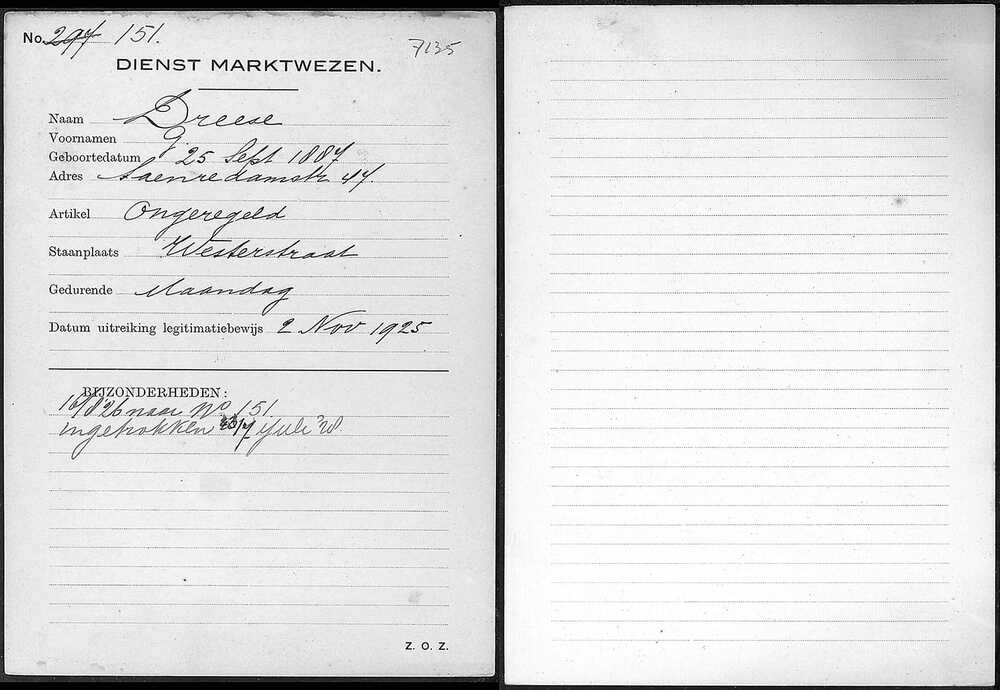 No. 297 151.
7135
DIENST MARKTWEZEN.
Naam Dreese
Voornamen G.
Geboortedatum 25 Sept 1887
Adres Saenredamstr 47.
Artikel Ongeregeld
Staanplaats Westerstraat
Gedurende Maandag
Datum uitreiking legitimatiebewijs 2 Nov 1925
BIJZONDERHEDEN:
16/8 '26 naar No 151.
ingetrokken 17 Juli '28.
Z. O. Z.